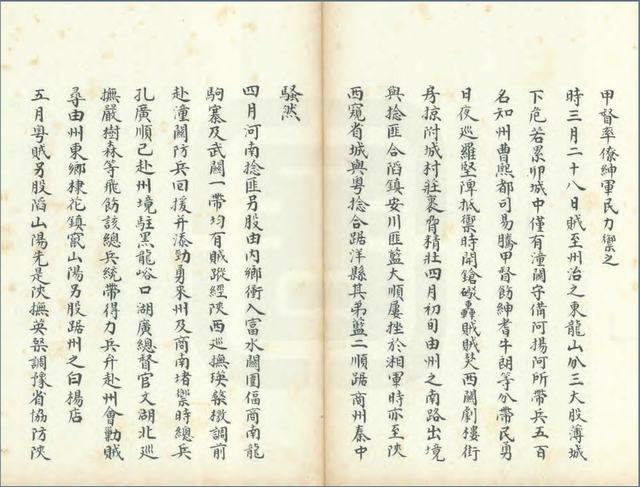 甲督率僚紳軍民力禦之
時三月二十八日賊至州治之東龍山分三大股薄城
下危若累卵城中僅有潼關守備阿揚阿所帶兵五百
名知州曹熙都司易騰甲督飭紳耆牛朗等分帶民勇
日夜巡羅堅陴抵禦時開鎗礮轟賊賊焚西關劇樓街
房掠附城村莊裹脅精壯四月初旬由州之南路出境
與捻匪合䧟鎮安川匪藍大順屢挫於湘軍時亦至陝
西窺省城與粵捻合踞洋縣其弟藍二順踞商州秦中
騷然
四月河南捻匪另股由內鄉衝入富水關圍偪商南龍
駒寨及武關一帶均有賊蹤經陝西巡撫瑛棨檄調前
赴潼關防兵回援并湊勁勇來州及商南堵禦時總兵
孔廣順已赴州境駐黑龍峪口湖廣總督官文湖北巡
撫嚴樹森等飛飭該總兵統帶得力兵弁赴州會勦賊
尋由州東鄉棣花鎮竄山陽另股踞州之白揚店
五月粵賊另股䧟山陽先是陝撫英棨調豫省協防陝